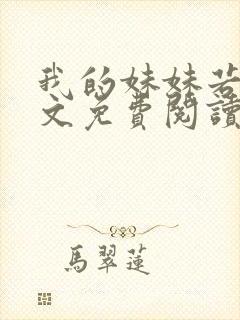 我的妹妹若
文免費閱讀
馬翠蓮